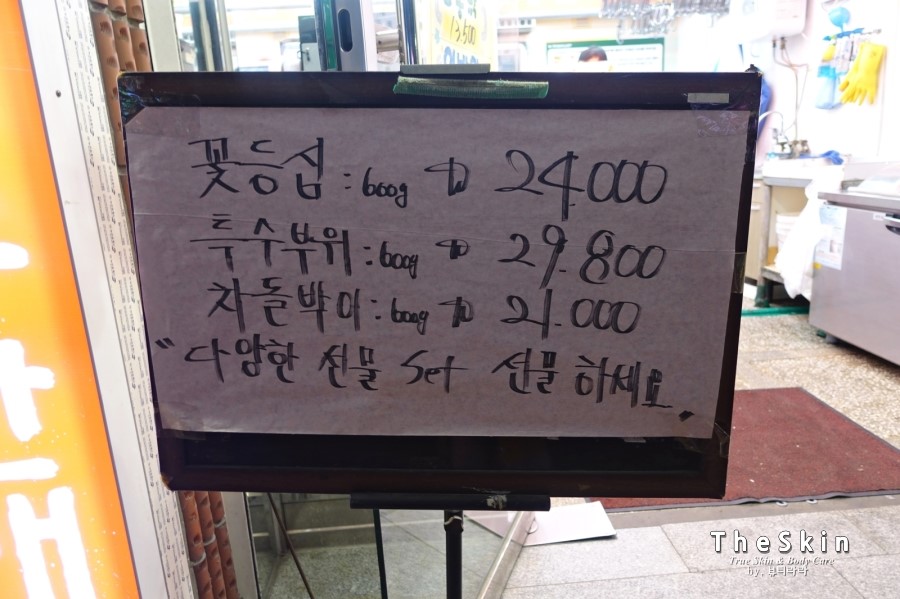 13,500
꽃등심 : 600g ₩ 24.000
특수부위 : 600g ₩ 29.800
차돌박이 : 600g ₩ 21.000
"다양한 선물 Set 선물 하세요"
TheSkin
True Skin & Body Care
by. 뷰티라라